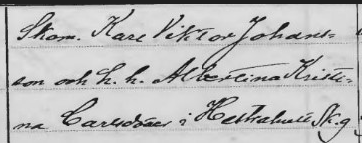 Skom. Karl Viktor Johans-
son och h. h. Albertina Kristi-
na Carlsdotter i Hestrahult Sk.g